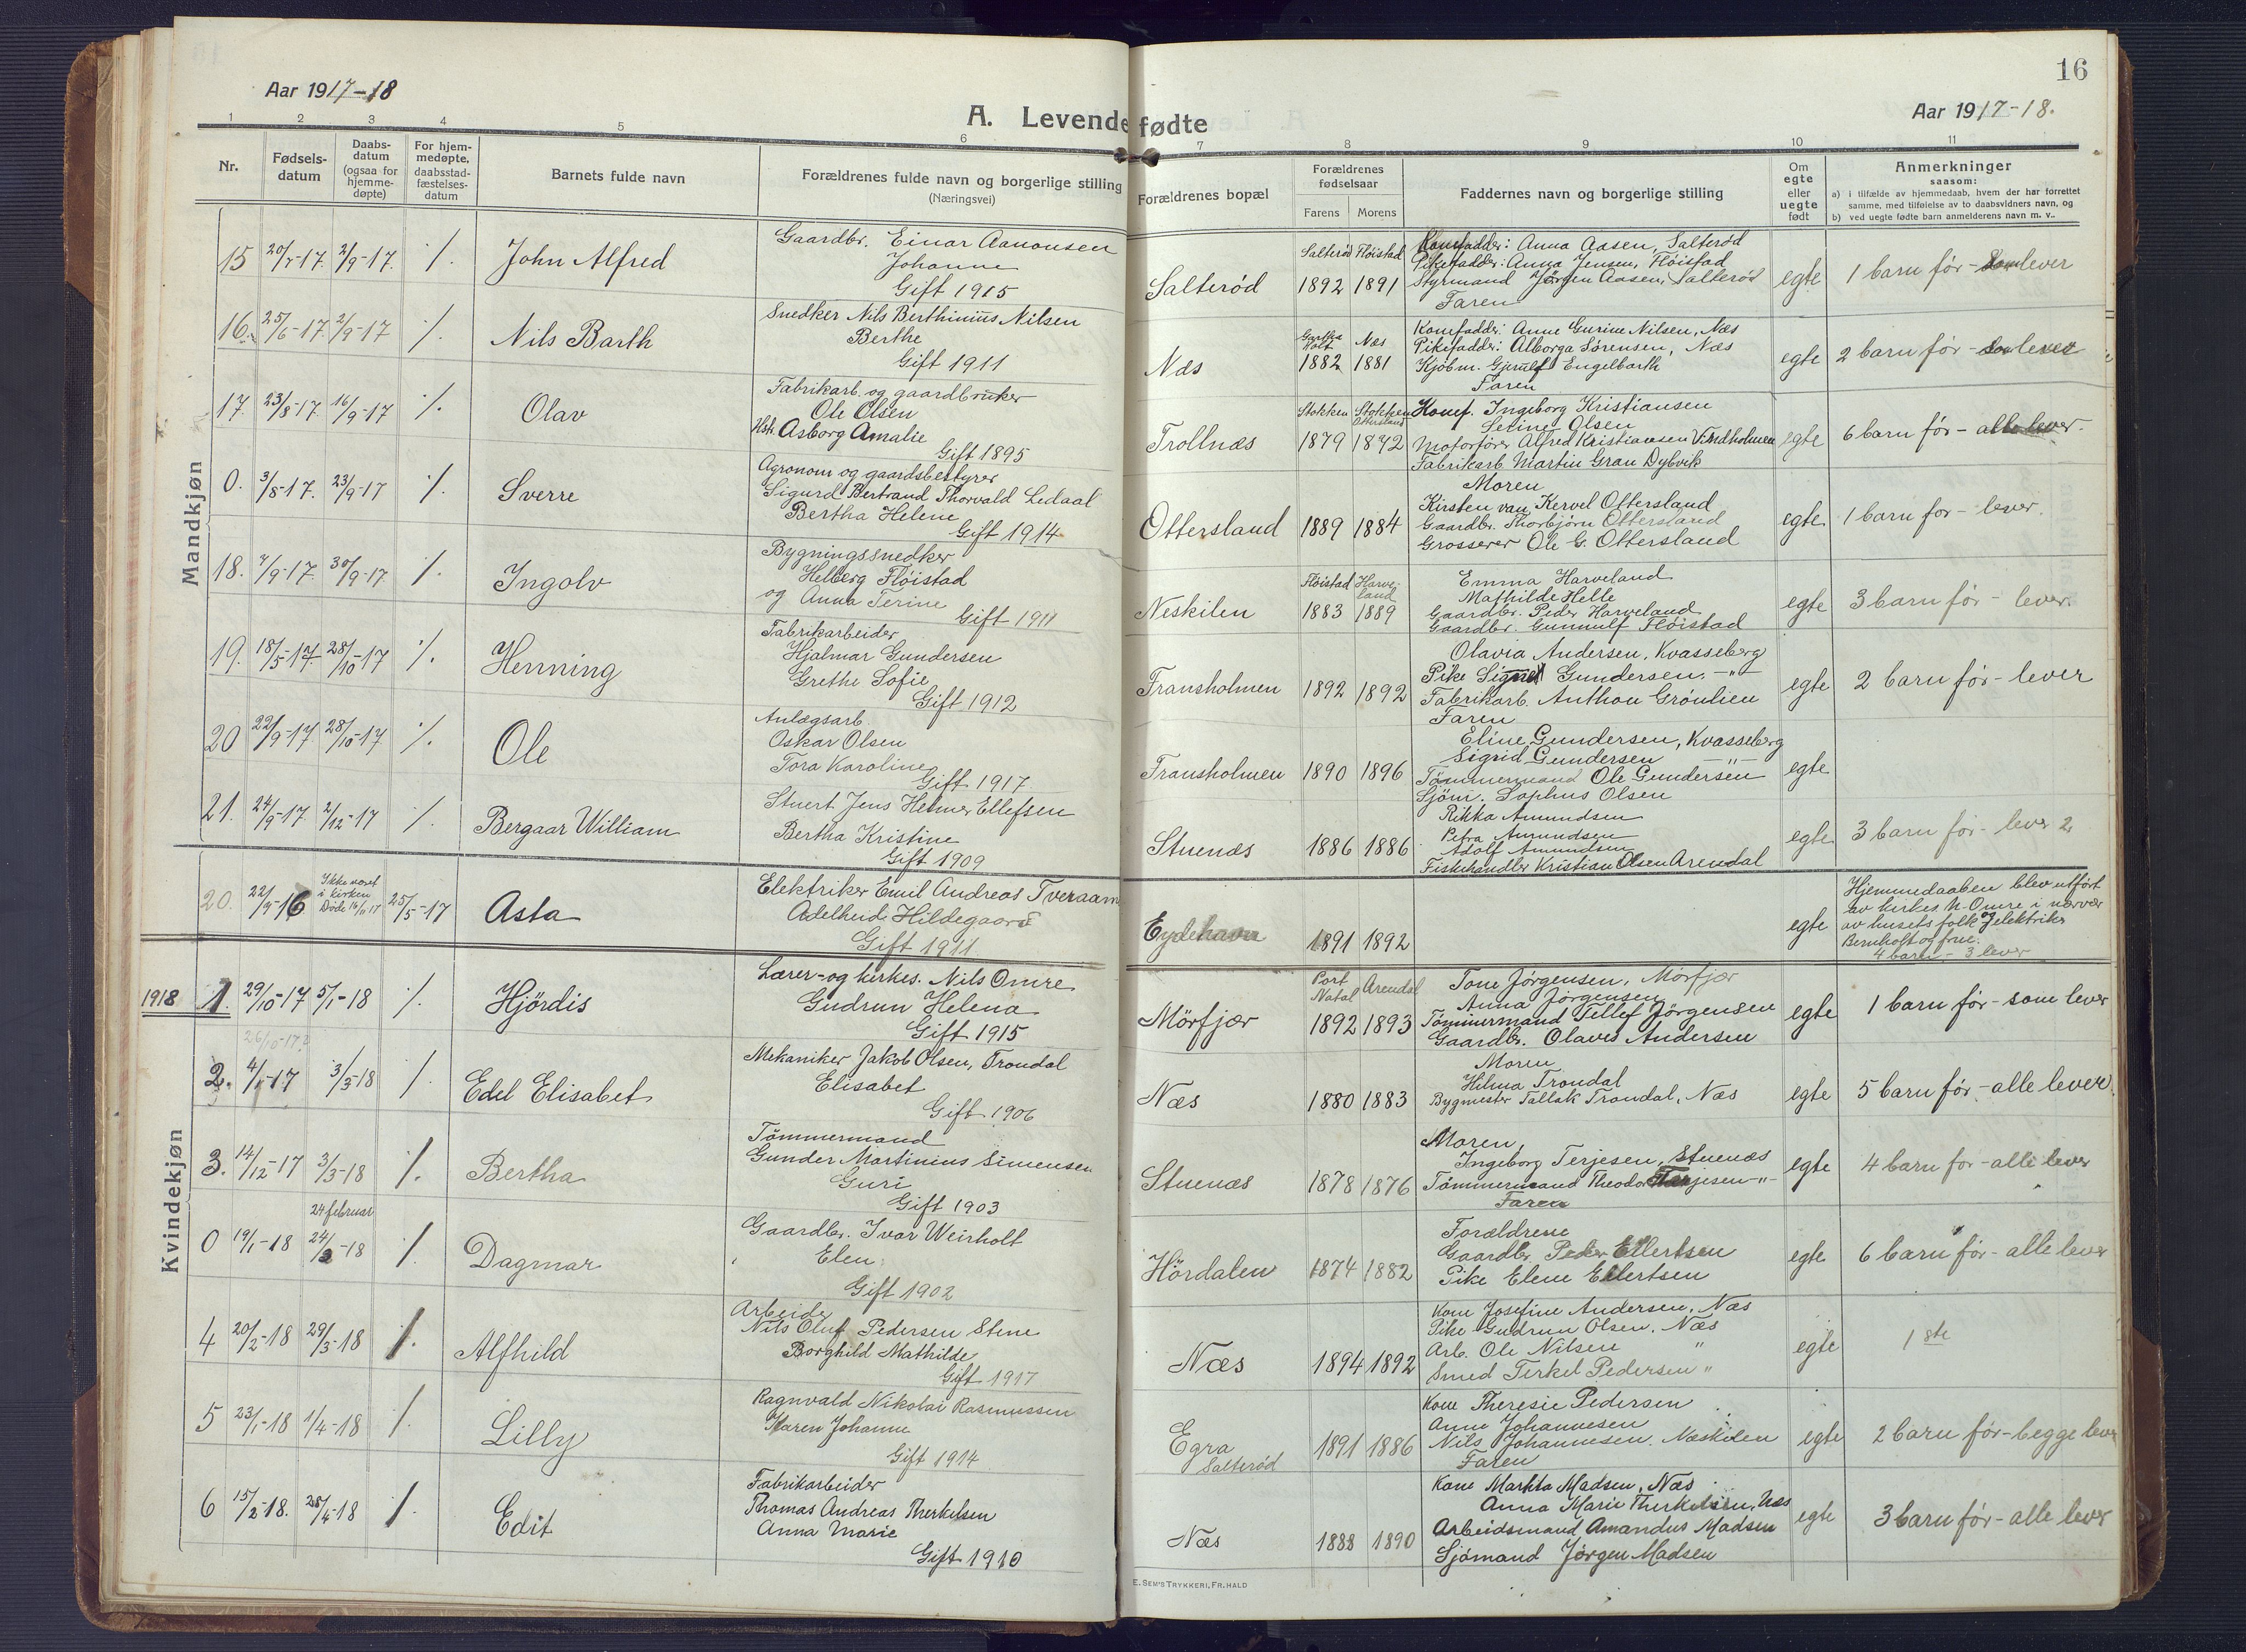 Aar 1917-18
A. Levendefødte
16
Aar 1917-18.
1 2 3 4 5 6 7 8 9 10 11
Nr.
Fødsels-
datum
Daabs-
datum
(ogsaa for
hjemme-
døpte)
For hjem-
medøpte,
daabsstad-
fæstelses-
datum
Barnets fulde navn
Forældrenes fulde navn og borgerlige stilling
(Næringsvei)
Forældrenes bopæl
Forældrenes
fødselsaar
Farens Morens
Faddernes navn og borgerlige stilling
Om
egte
eller
uegte
født
Anmerkninger
saasom:
a) i tilfælde av hjemmedaab, hvem der har forrettet
samme, med tilføielse av to daabsvidners navn, og
b) ved uegte fødte barn anmelderens navn m. v..
Mandkjøn
15 20/7-17. 2/9-17. /. John Alfred
Gaardbr. Einar Aanonsen
Johanne
Gift 1915
Salterød
Salterød Fløistad
1892 1891
Konefadder: Anna Aasen, Salterød
Pikefadder: Anna Jensen, Fløistad
Styrmand Jörgen Aasen, Salterød
Faren
egte 1 barn før - som lever
16. 25/6-17. 2/9-17 /. Nils Barth
Snedker Nils Berthinius Nilsen
Berthe
Gift 1911
Næs
Næs
1882 1881
Konefadder: Anne Gurine Nilsen, Næs
Pikefadder: Alborga Sørensen, Næs
Kjöbm. Gjerulf Engelbarth
Faren
egte 2 barn før - lever
17. 23/8-17. 16/9-17 /. Olav
Fabrikarb. og gaardbruker
Ole Olsen
Hstr. Asborg Amalie
Gift 1895
Trollnæs
Stokken Stokken
Ottersland
1879 1872
Konef. Ingeborg Kristiansen
Seline Olsen
Motorfører Alfred Kristiansen Vindholmen
Fabrikarb. Martin Grau Dybvik
Moren
egte 6 barn før - alle lever.
0. 3/8-17. 23/9-17 /. Sverre
Agronom og gaardsbestyrer
Sigurd Bertrand Thorvald Ledaal
Bertha Helene
Gift 1914
Ottersland 1889 1884
Kirsten van Kervel Ottersland
Gaardbr. Thorbjørn Ottersland
Grosserer Ole G. Ottersland
egte 1 barn før - lever.
18. 7/9-17. 30/9-17 /. Ingolv
Bygningssnedker
Helberg Fløistad
og Anna Terine
Gift 1911
Neskilen
Fløistad Harve-
land
1883 1889
Emma Harveland
Mathilde Helle
Gaardbr. Peder Harveland
Gaardbr. Gunnulf Fløistad
egte 3 barn før - lever.
19. 18/5-17. 28/10-17 /. Henning
Fabrikarbeider
Hjalmar Gundersen
Grethe Sofie
Gift 1912
Fransholmen 1892 1892
Olavia Andersen, Kvasseberg
Pike Signe Gundersen. -"-
Fabrikarb. Anthon Grönlien
Faren
egte 2 barn før - lever
20 22/9-17. 28/10-17 /. Ole
Anlægsarb.
Oskar Olsen
Tora Karoline
Gift 1917
Fransholmen 1890 1896
Eline Gundersen, Kvasseberg
Sigrid Gundersen -"-
Tömmermand Ole Gundersen
Sjöm. Sophus Olsen
egte
21. 24/9-17. 2/12-17 /. Bergaar William
Stuert. Jens Helmer Ellefsen
Bertha Kristine
Gift 1909
Stuenæs 1886 1886
Rikka Amundsen
Petra Amundsen
Adolf Amundsen
Fiskehandler Kristian Olsen Arendal
egte 3 barn før - lever 2
20. 22/9-16
Ikke været
i kirken
Døde 16/11 17
25/5-17 Asta
Elektriker Emil Andreas Tveraam
Adelheid Hildegaard
Gift 1911
Eydehavn 1891 1892
egte
Hjemmedaaben blev utført
av kirkes. N. Omre i nærvær
av husets folk og elektriker
Bernholt og frue.
4 barn - 3 lever
Kvindekjøn
1918 1. 29/10-17 5/1-18 /. Hjördis
Lærer- og kirkes. Nils Omre
Gudrun Helena
Gift 1915
Mörfjær
Port
Natal
Arendal
1892 1893
Tone Jörgensen, Mörfjær
Anna Jörgensen
Tömmermand Tellef Jörgensen
Gaardbr. Olaves Andersen
egte 1 barn før - som lever
26/10-17?
2. 4/11-17 3/3-18 /. Edel Elisabet
Mekaniker Jakob Olsen, Trondal
Elisabet
Gift 1906
Næs 1880 1883
Moren
Hilma Trondal
Bygmester Tallak Trondal, Næs
egte 5 barn før - alle lever
3. 14/12-17 3/3-18 /. Bertha
Tömmermand
Gunder Martinius Simensen
Guri
Gift 1903
Stuenæs 1878 1876
Moren,
Ingeborg Terjesen, Stuenæs
Tömmermand Theodor Terjesen -"-
Faren
egte 4 barn før - alle lever
0 19/1-18
24 februar
24/2-18 /. Dagmar
Gaardbr. Ivar Weirholt
Elen
Gift 1902
Hördalen 1874 1882
Forældrene
Gaardbr. Peder Ellertsen
Pike Elene Ellertsen
egte 6 barn før - alle lever
4 20/2-18 29/3-18 /. Alfhild
Arbeider
Nils Oluf Pedersen Stene
Borghild Mathilde
Gift 1917
Næs 1894 1892
Kone Josefine Andersen, Næs
Pike Gudrun Olsen. Næs
Arb. Ole Nilsen "
Smed Terkel Pedersen "
egte 1ste
5 23/1-18 1/4-18 /. Lilly
Ragnvald Nikolai Rasmussen
Karen Johanne
Gift 1914
Egra
Salterød
1891 1886
Kone Theresie Pedersen
Anne Johannesen
Nils Johannesen. Næskilen
Faren
egte 2 barn før - begge lever
6 15/2-18. 28/4-18 /. Edit
Fabrikarbeider
Thomas Andreas Therkelsen
Anna Marie
Gift 1910
Næs 1888 1890
Kone Martha Madsen, Næs
Anna Marie Therkelsen, Næs
Arbeidsmand Amandus Madsen
Sjömand Jörgen Madsen
egte 3 barn før - alle lever
E. SEM'S TRYKKERI, FR.HALD